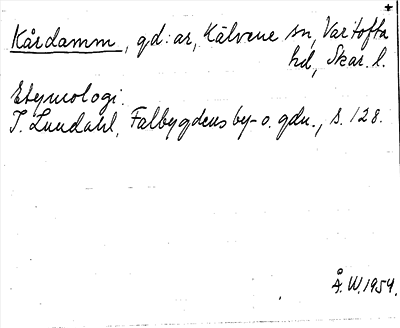 Kårdamm, gd:ar, Kälvene sn, Vartofta
hd, Skar. l.
Etymologi:
I. Lundahl, Falbygdens by- o. gdn., s. 128.
Å. W. 1954.